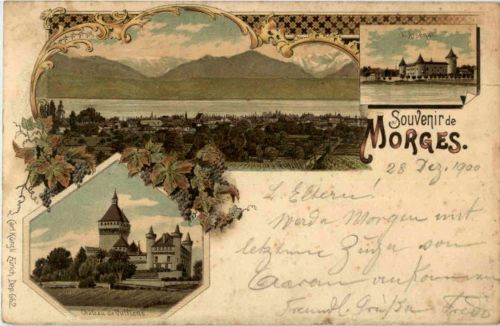 L'Arsenal
Souvenir de
MORGES.
28 Dez. 1900
L. Eltern!
Werde Morgen mit
letztem Zuge von
Aarau ankommen
Freundl. Grüße
Château de Vufflens
Carl Künzli, Zürich, Dep. 662.